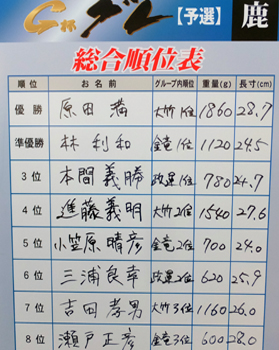 G杯 グレ 【予選】 鹿
総合順位表
順位 お名前 グループ内順位 重量(g) 長寸(cm)
優勝 原田 満 大竹1位 1860 28.7
準優勝 林 利和 金竜1位 1120 24.5
3位 本間義勝 政運1位 780 24.7
4位 進藤義明 大竹2位 1540 27.6
5位 小笠原晴彦 金竜2位 700 24.0
6位 三浦良幸 政運2位 620 25.9
7位 吉田孝男 大竹3位 1160 26.0
8位 瀬戸正彦 金竜3位 600 28.0